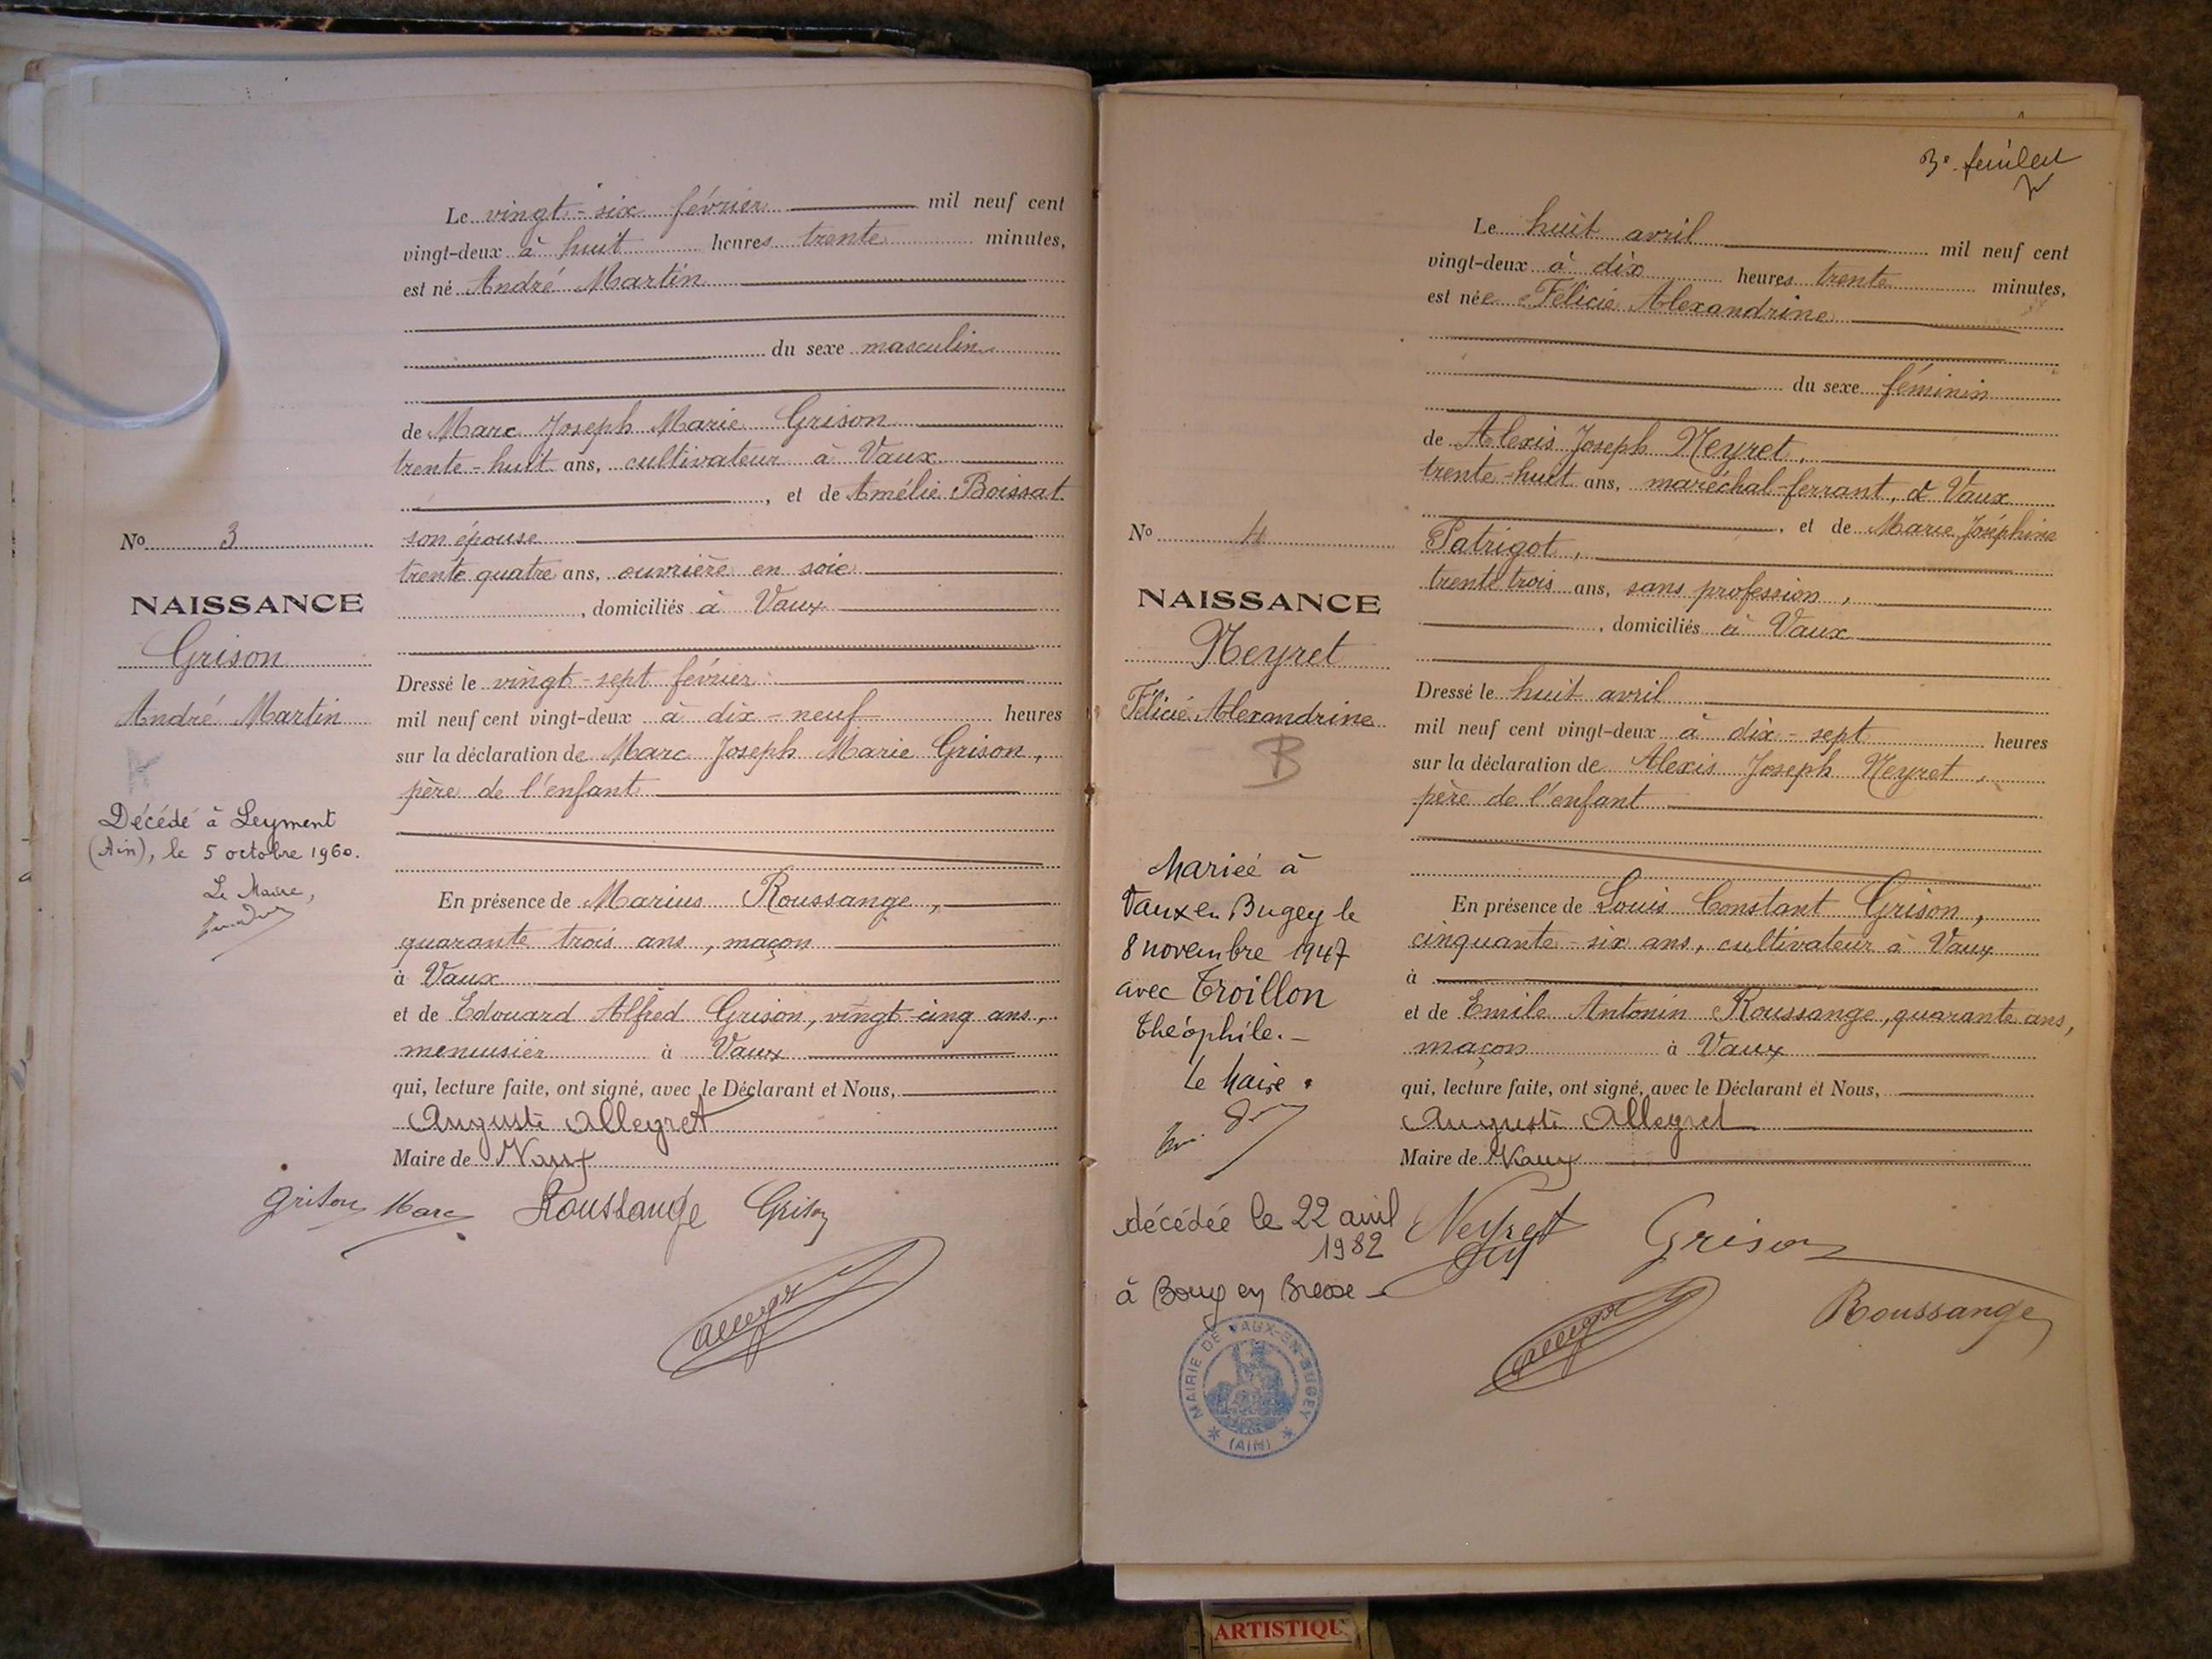 Le vingt-six février mil neuf cent
vingt-deux à huit heures trente minutes,
est né André Martin
du sexe masculin
de Marc Joseph Marie Grison
trente-huit ans, cultivateur à Vaux
, et de Amélie Boissat
son épouse
trente quatre ans, ouvrière en soie
, domiciliés à Vaux
Dressé le vingt-sept février
mil neuf cent vingt-deux à dix-neuf heures
sur la déclaration de Marc Joseph Marie Grison,
père de l'enfant
En présence de Marius Roussange,
quarante trois ans, maçon
à Vaux
et de Edouard Alfred Grison, vingt-cinq ans,
menuisier à Vaux
qui, lecture faite, ont signé, avec le Déclarant et Nous,
Auguste Alleyret
Maire de Vaux
Grison Marc Roussange Grison
No 3
NAISSANCE
Grison
André Martin
Décédé à Leyment
(Ain), le 5 octobre 1960.
Le Maire,
3e feuillet
Le huit avril mil neuf cent
vingt-deux à dix heures trente minutes,
est née Félicie Alexandrine
du sexe féminin
de Alexis Joseph Neyret,
trente-huit ans, maréchal-ferrant, à Vaux
, et de Marie Joséphine
Patrigot,
trente trois ans, sans profession,
, domiciliés à Vaux
Dressé le huit avril
mil neuf cent vingt-deux à dix-sept heures
sur la déclaration de Alexis Joseph Neyret,
père de l'enfant
En présence de Louis Constant Grison,
cinquante-six ans, cultivateur à Vaux
à
et de Emile Antonin Roussange, quarante ans,
maçon à Vaux
qui, lecture faite, ont signé, avec le Déclarant et Nous,
Auguste Alleyret
Maire de Vaux
Neyret Grison
Roussange
No 4
NAISSANCE
Neyret
Félicie Alexandrine
B
Mariée à
Vaux en Bugey le
8 novembre 1947
avec Troillon
Théophile.-
Le Maire
décédée le 22 avril
1982
à Bourg en Bresse
MAIRIE DE VAUX-EN-BUGEY
(AIN)
ARTISTIQU